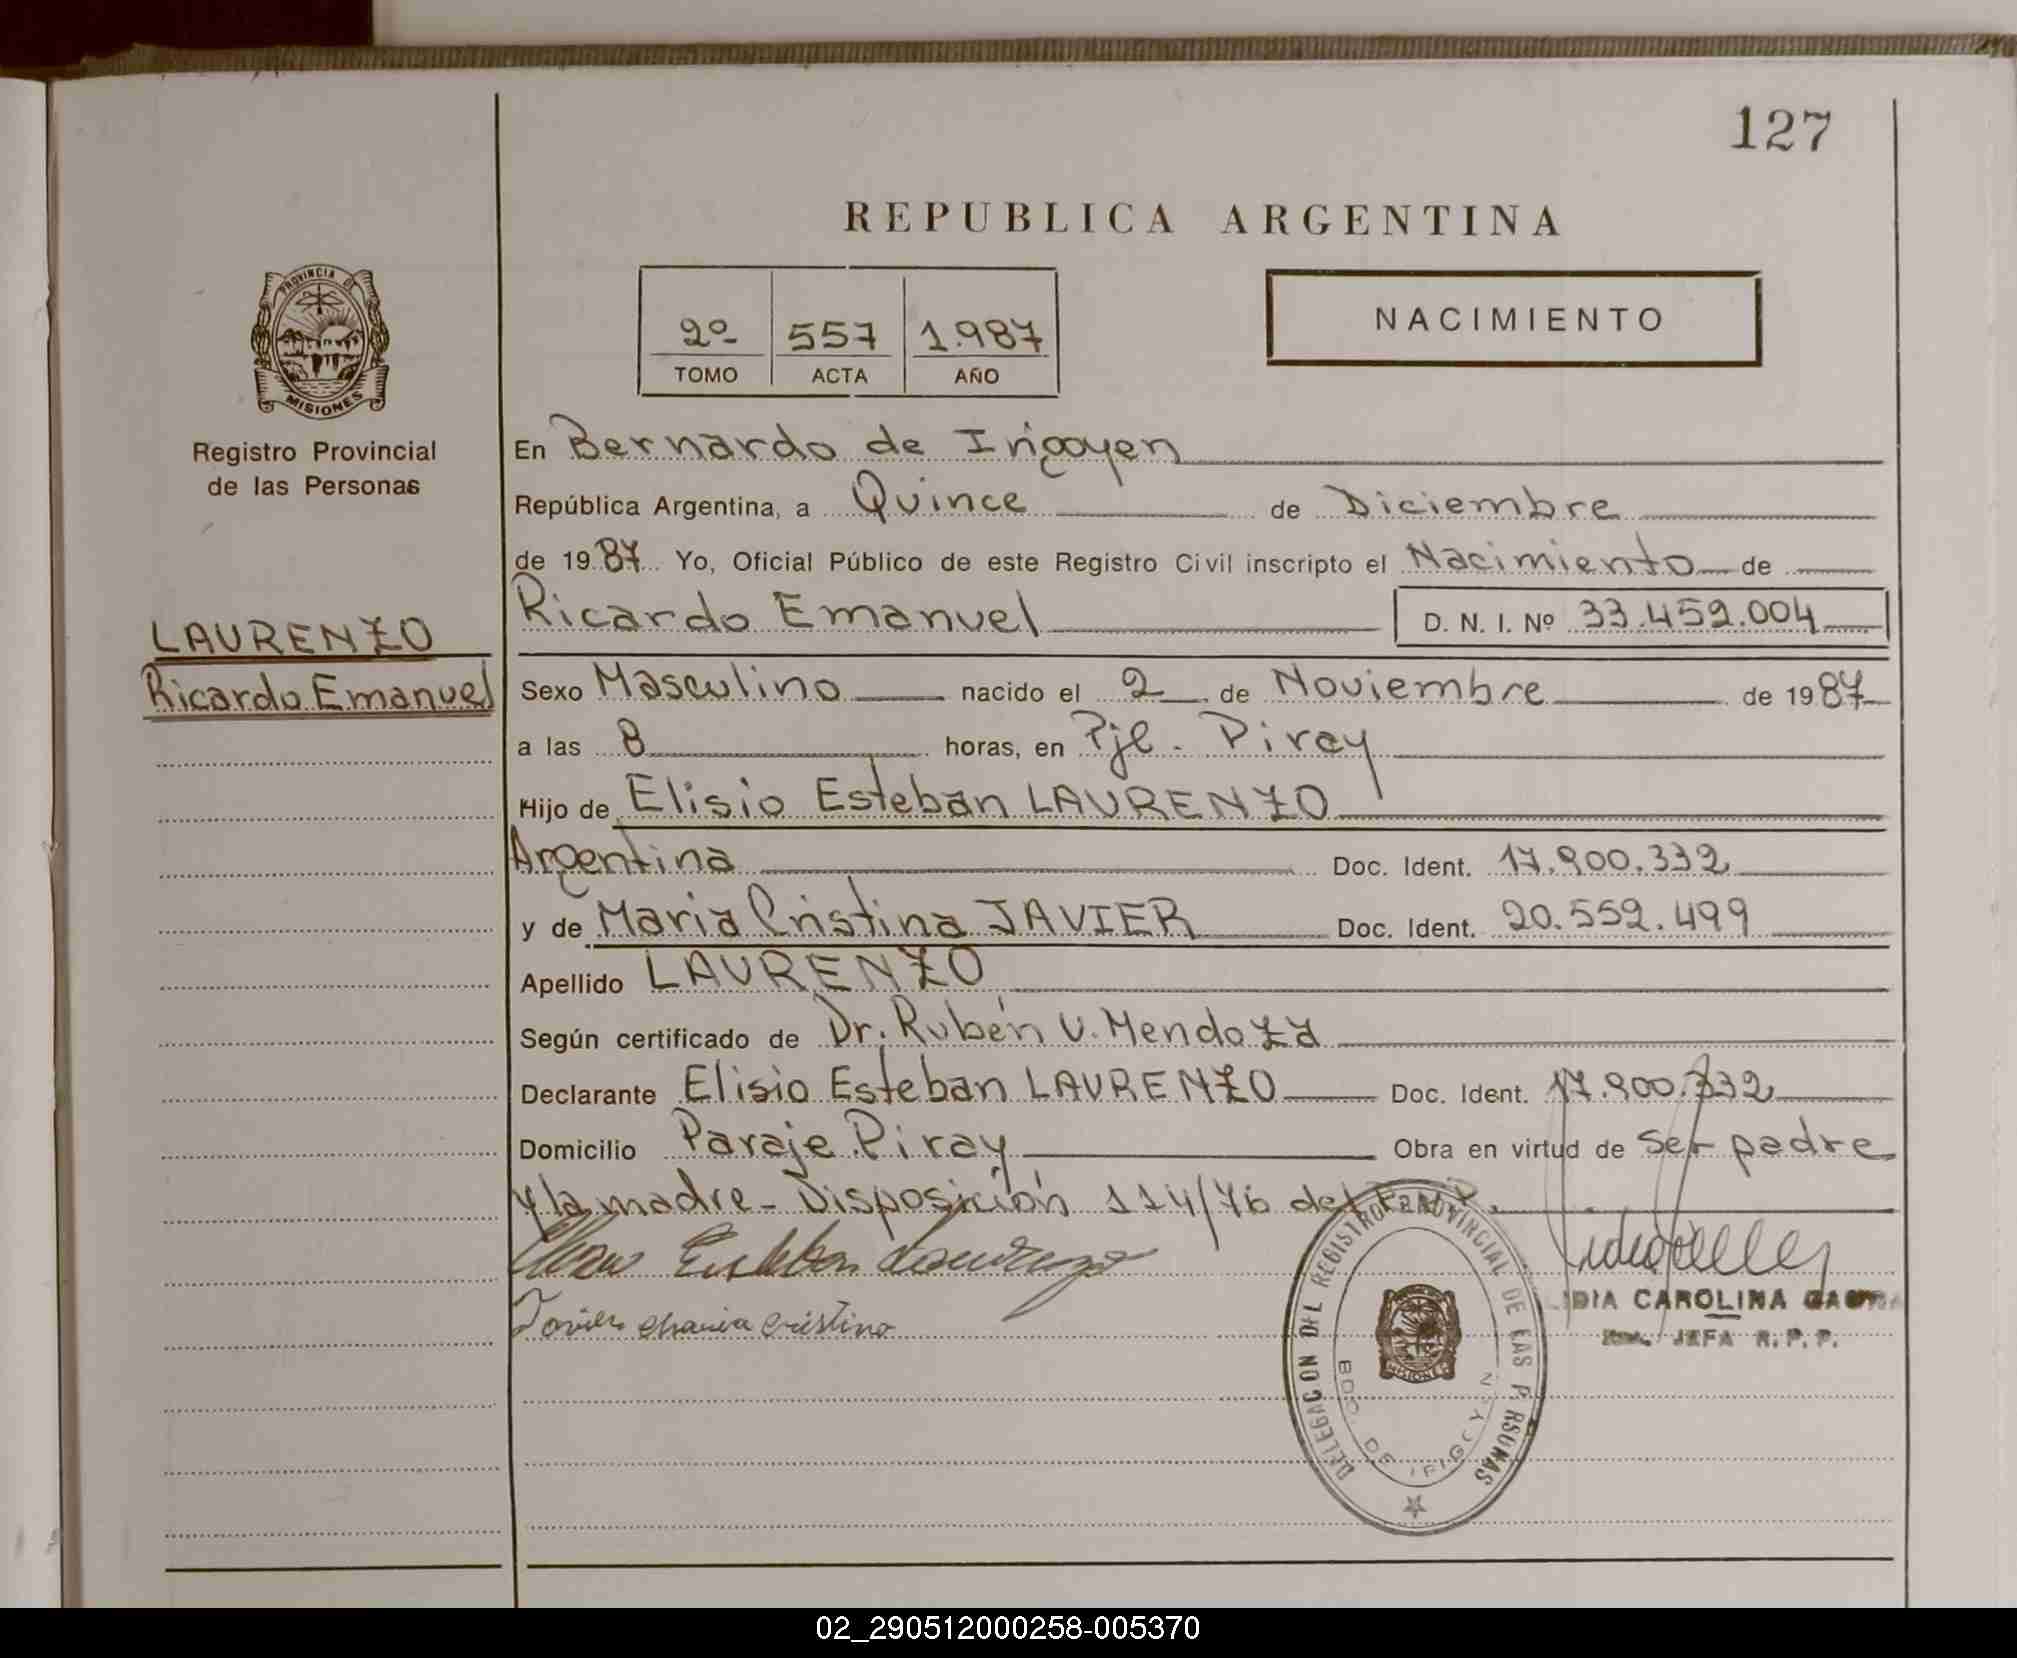 127
REPUBLICA ARGENTINA
PROVINCIA DE
MISIONES
Registro Provincial
de las Personas
2º 557 1.987
TOMO ACTA AÑO
NACIMIENTO
En Bernardo de Irigoyen
República Argentina, a Quince de Diciembre
de 19 87 Yo, Oficial Público de este Registro Civil inscripto el Nacimiento de
LAURENZO
Ricardo Emanuel
Ricardo Emanuel D. N. I. Nº 33.459.004
Sexo Masculino nacido el 2 de Noviembre de 19 87
a las 8 horas, en Pje. Piray
Hijo de Elisio Esteban LAURENZO
Argentina Doc. Ident. 17.900.332
y de Maria Cristina JAVIER Doc. Ident. 20.559.499
Apellido LAURENZO
Según certificado de Dr. Rubén V. Mendoza
Declarante Elisio Esteban LAURENZO Doc. Ident. 17.900.332
Domicilio Paraje Piray Obra en virtud de ser padre
y la madre - Disposición 114/76 del
Esteban Laurenzo
Javier Maria Cristina
LIDIA CAROLINA
JEFA R. P. P.
DELEGACION DEL REGISTRO PROVINCIAL DE LAS PERSONAS
BDO. DE IRIGOYEN
MISIONES
02_290512000258-005370